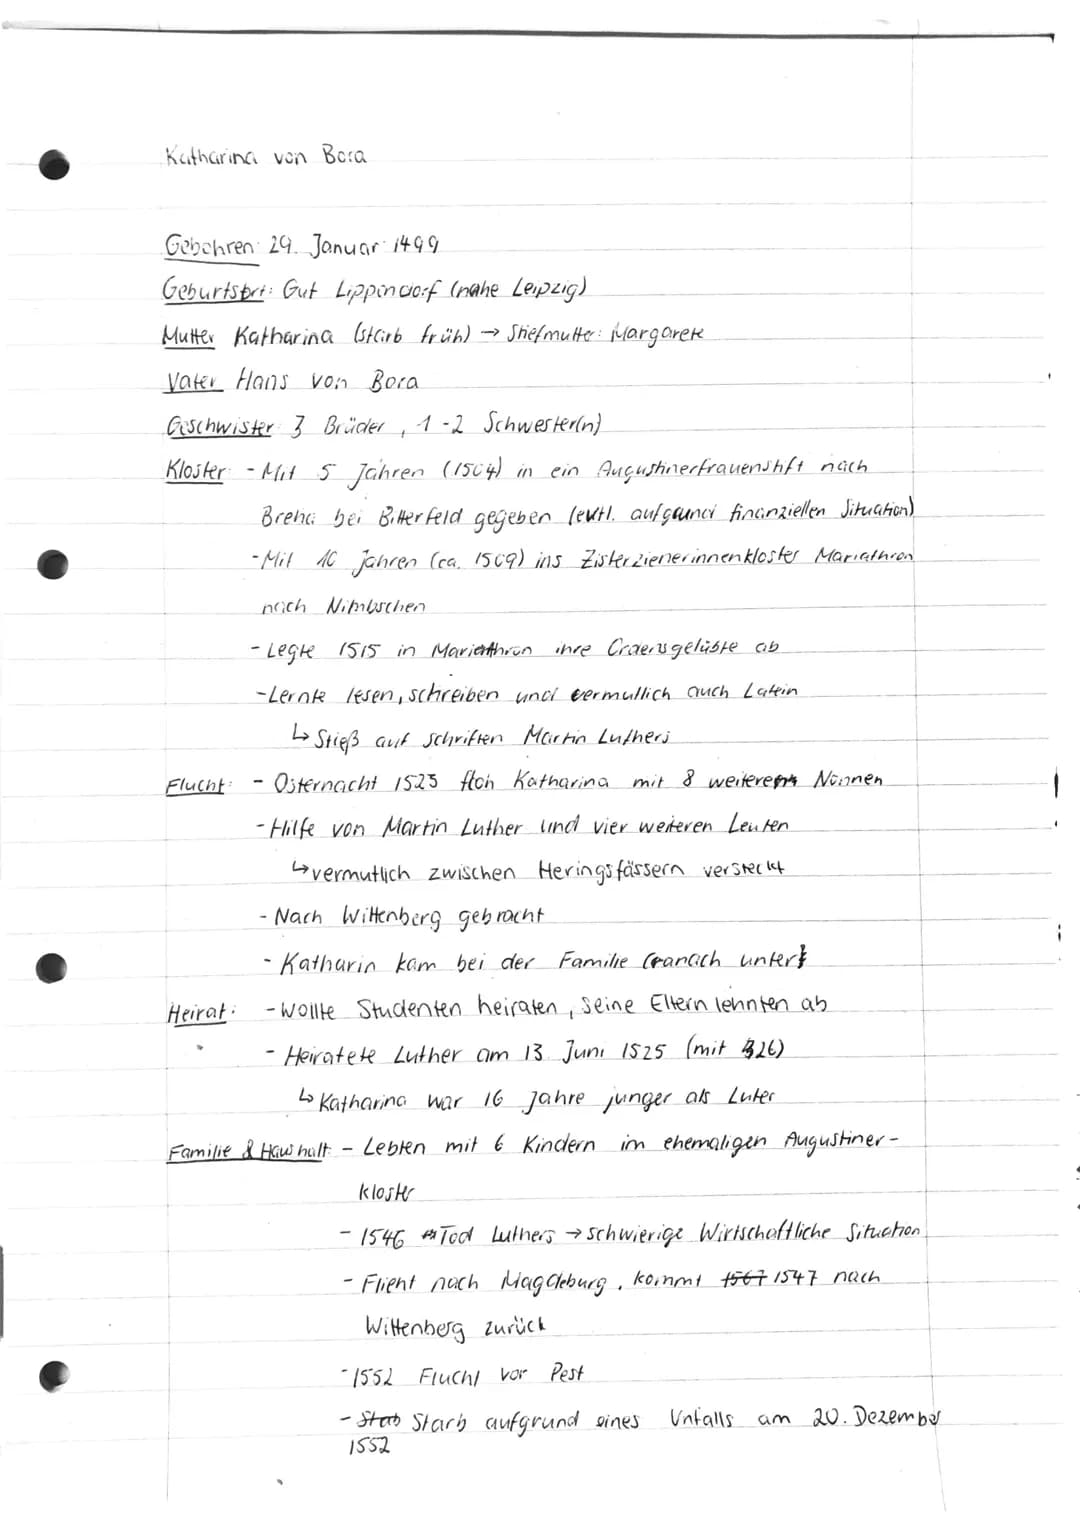 Katharina von Bora
Gebohren: 29. Januar 1499
Geburtsort: Gut Lippendorf (nahe Leipzig)
Mutter Katharina (starb früh) → Stiefmutter: Margarete
Vater Hans von Bora
Geschwister 3 Brüder, 1-2 Schwester(n)
Kloster: - Mit 5 Jahren (1504) in ein Augustinerfrauenstift nach
Brehna bei Bitterfeld gegeben (evtl. aufgrund finanziellen Situation)
- Mit 10 Jahren (ca. 1509) ins Zisterzienerinnenkloster Mariathron
nach Nimbschen
- Legte 1515 in Mariathron ihre Ordensgelübte ab
- Lernte lesen, schreiben und vermutlich auch Latein
↳ Stieß auf Schriften Martin Luthers
Flucht: - Osternacht 1523 floh Katharina mit 8 weiteren Nonnen
- Hilfe von Martin Luther und vier weiteren Leuten
↳ vermutlich zwischen Heringsfässern versteckt
- Nach Wittenberg gebracht
- Katharin kam bei der Familie Cranach unter
Heirat: - Wollte Studenten heiraten, seine Eltern lehnten ab
- Heiratete Luther am 13. Juni 1525 (mit 26)
↳ Katharina war 16 Jahre junger als Luter
Familie & Haushalt: - Lebten mit 6 Kindern im ehemaligen Augustiner-
kloster
- 1546 Tod Luthers → schwierige Wirtschaftliche Situation
- Flieht nach Magdeburg, kommt 1567 1547 nach
Wittenberg zurück
- 1552 Flucht vor Pest
- Stab Starb aufgrund eines Unfalls am 20. Dezember
1552